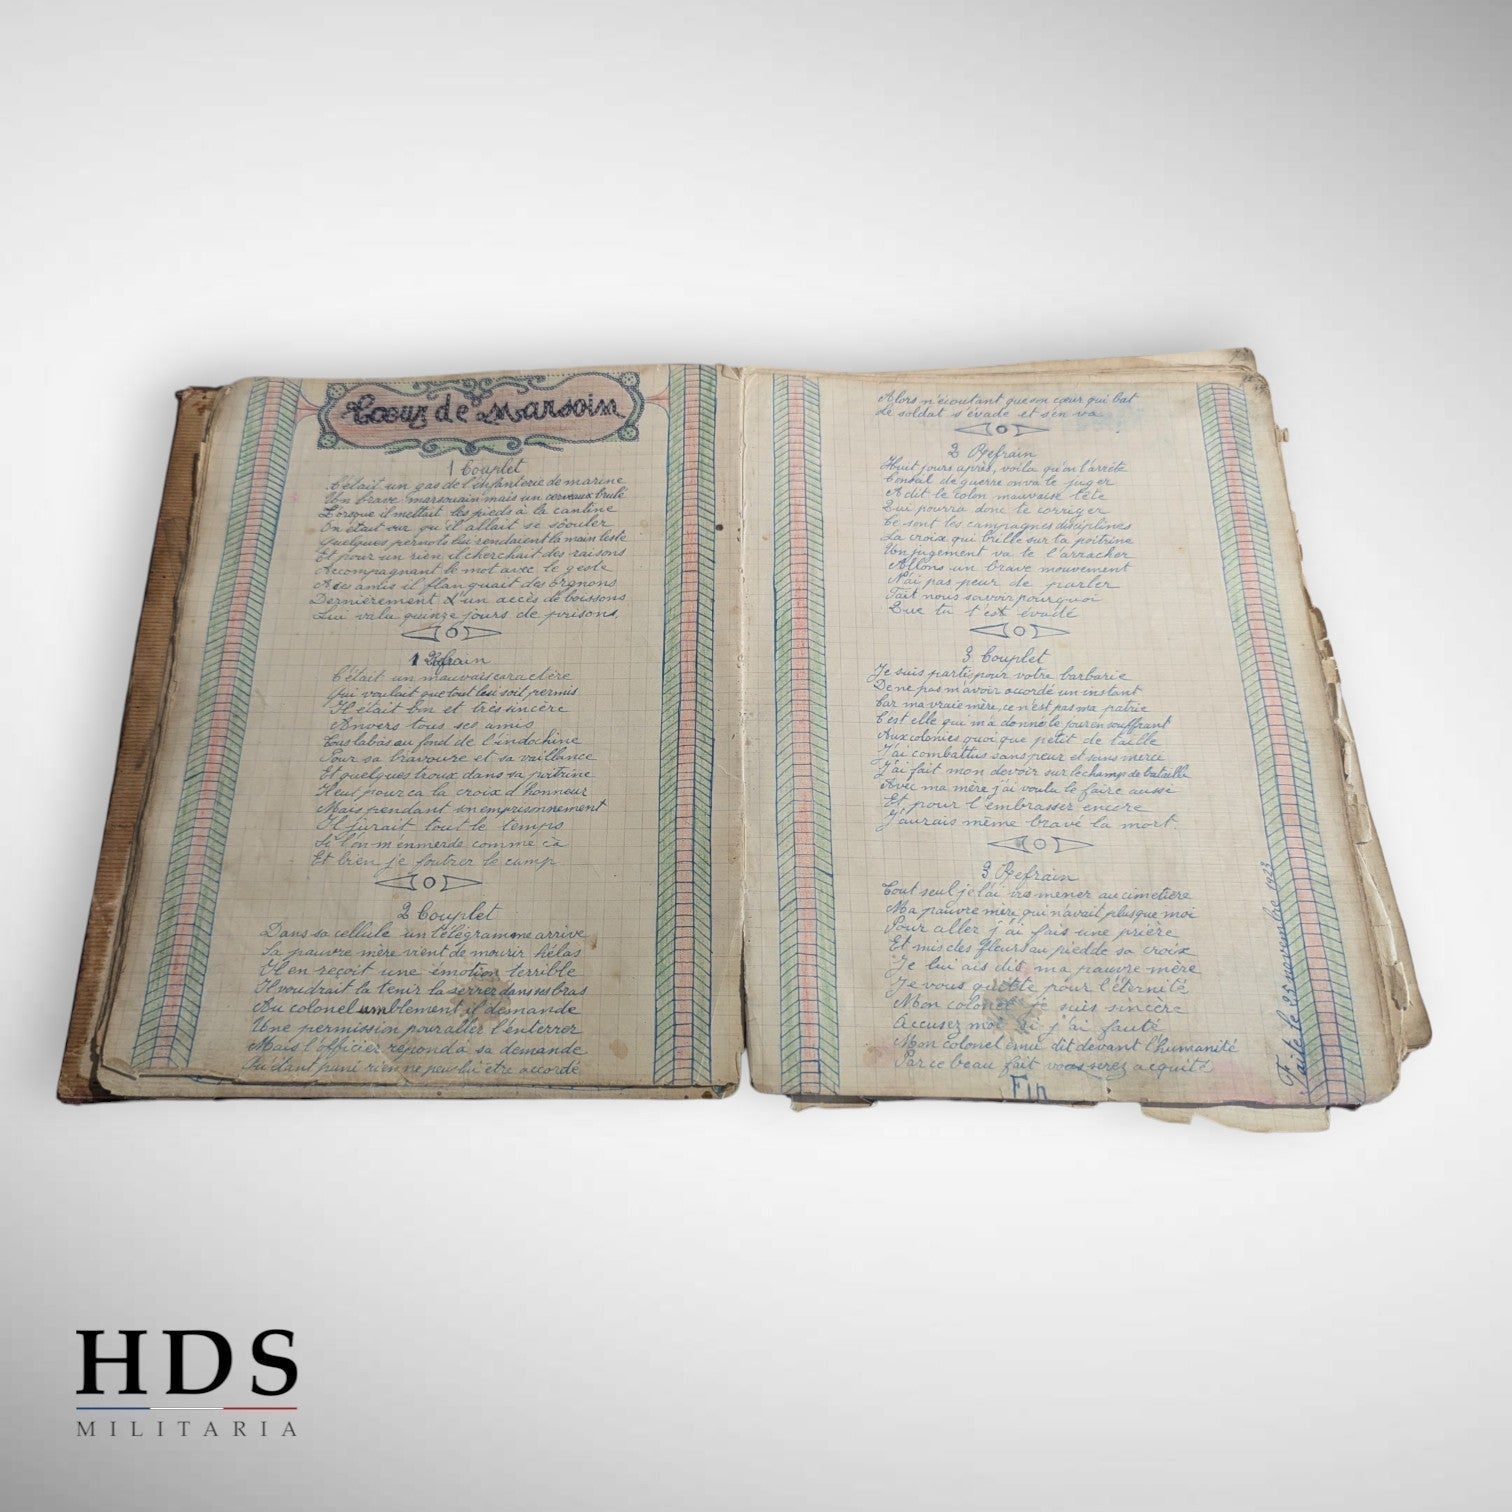 Cœur de Marsoin
1 Couplet
C'était un gas de l'enfanterie de marine
Un brave marsouin mais un cerveaux brulé
Lorsque il mettait les pieds à la cantine
On était sur qu'il allait se soouler
Quelques pernots lui rendaient la main leste
Et pour un rien il cherchait des raisons
Accompagnant le mot avec le geste
A ses amis il flanquait des orgnons
Dernièrement d'un accès de boissons
Lui valu quinze jours de prisons.
1 Refrain
C'était un mauvais caractère
Qui voulait que tout lui soit permis
Il était bon et très sincère
Anvers tous ses amis
Tous labas au fond de l'indochine
Pour sa bravoure et sa vaillance
Et quelques troux dans sa poitrine
Heut pour ca la croix d'honneur
Mais pendant son emprisonnement
Il jurait tout le temps
Si l'on m'enmerde comme cà
Et bien je foutrer le camp
2 Couplet
Dans sa cellule un télégramme arrive
Sa pauvre mère vient de mourir hélas
Il en reçoit une émotion terrible
Il voudrait la tenir la serrer dans ses bras
Au colonel umblement il demande
Une permission pour aller l'enterrer
Mais l'officier répond à sa demande
Qu'étant puni rien ne peu lui etre accordé
Alors n'écoutant que son cœur qui bat
Le soldat s'évade et s'en va
2 Refrain
Huit jours après, voila qu'on l'arrête
Conseil de guerre on va le juger
A dit le colon mauvaise tête
Qui pourra donc te corriger
Ce sont les campagnes disciplines
La croix qui brille sur ta poitrine
Un jugement va te l'arracher
Allons un brave mouvement
N'ai pas peur de parler
Fait nous savoir pourquoi
Que tu t'est évadé
3 Couplet
Je suis partis pour votre barbarie
De ne pas m'avoir accordé un instant
Car ma vraie mère, ce n'est pas ma patrie
C'est elle qui m'a donné le jour en souffrant
Aux colonies quoi que petit de taille
J'ai combattus sans peur et sans merci
J'ai fait mon devoir sur le champ de bataille
Avec ma mère j'ai voulu le faire aussi
Et pour l'embrasser encore
J'aurais même bravé la mort.
3 Refrain
Tout seul je l'ai vis mener au cimetière
Ma pauvre mère qui n'avait plus que moi
Pour aller j'ai fais une prière
Et mis des fleurs au pied de sa croix
Je lui ais dit ma pauvre mère
Je vous quitte pour l'éternité
Mon colonel je suis sincère
Accusez moi si j'ai fauté
Mon colonel ému dit devant l'humanité
Par ce beau fait vous serez acquité
Fin
Faite le 25 novembre 1923
HDS
MILITARIA